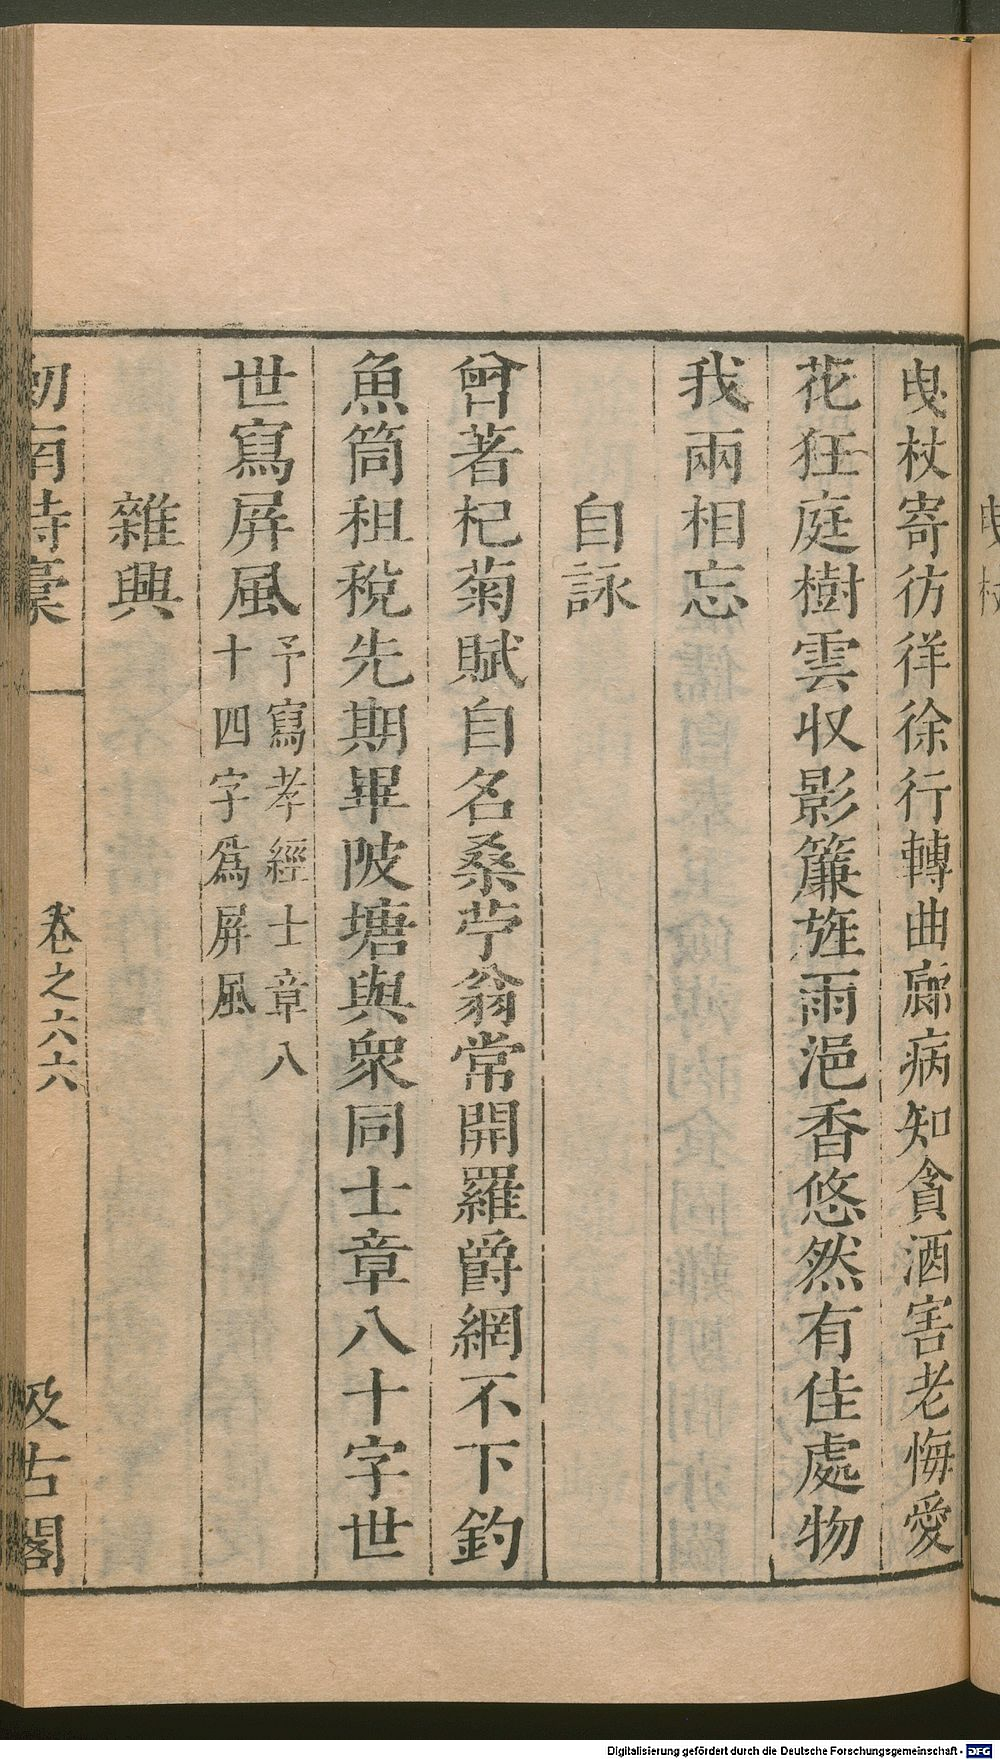 曳杖
曳杖寄彷徉徐行轉曲廊病知貪酒害老悔愛
花狂庭樹雲収影簾旌雨浥香悠然有佳處物
我兩相忘
自詠
曾著杞菊賦自名桑苧翁常開羅爵網不下釣
魚筒租稅先期畢陂塘與衆同士章八十字世
世寫屏風予寫孝經士章八
十四字爲屏風
雜興
劒南詩稾
卷之六六
汲古閣
Digitalisierung gefördert durch die Deutsche Forschungsgemeinschaft - DFG